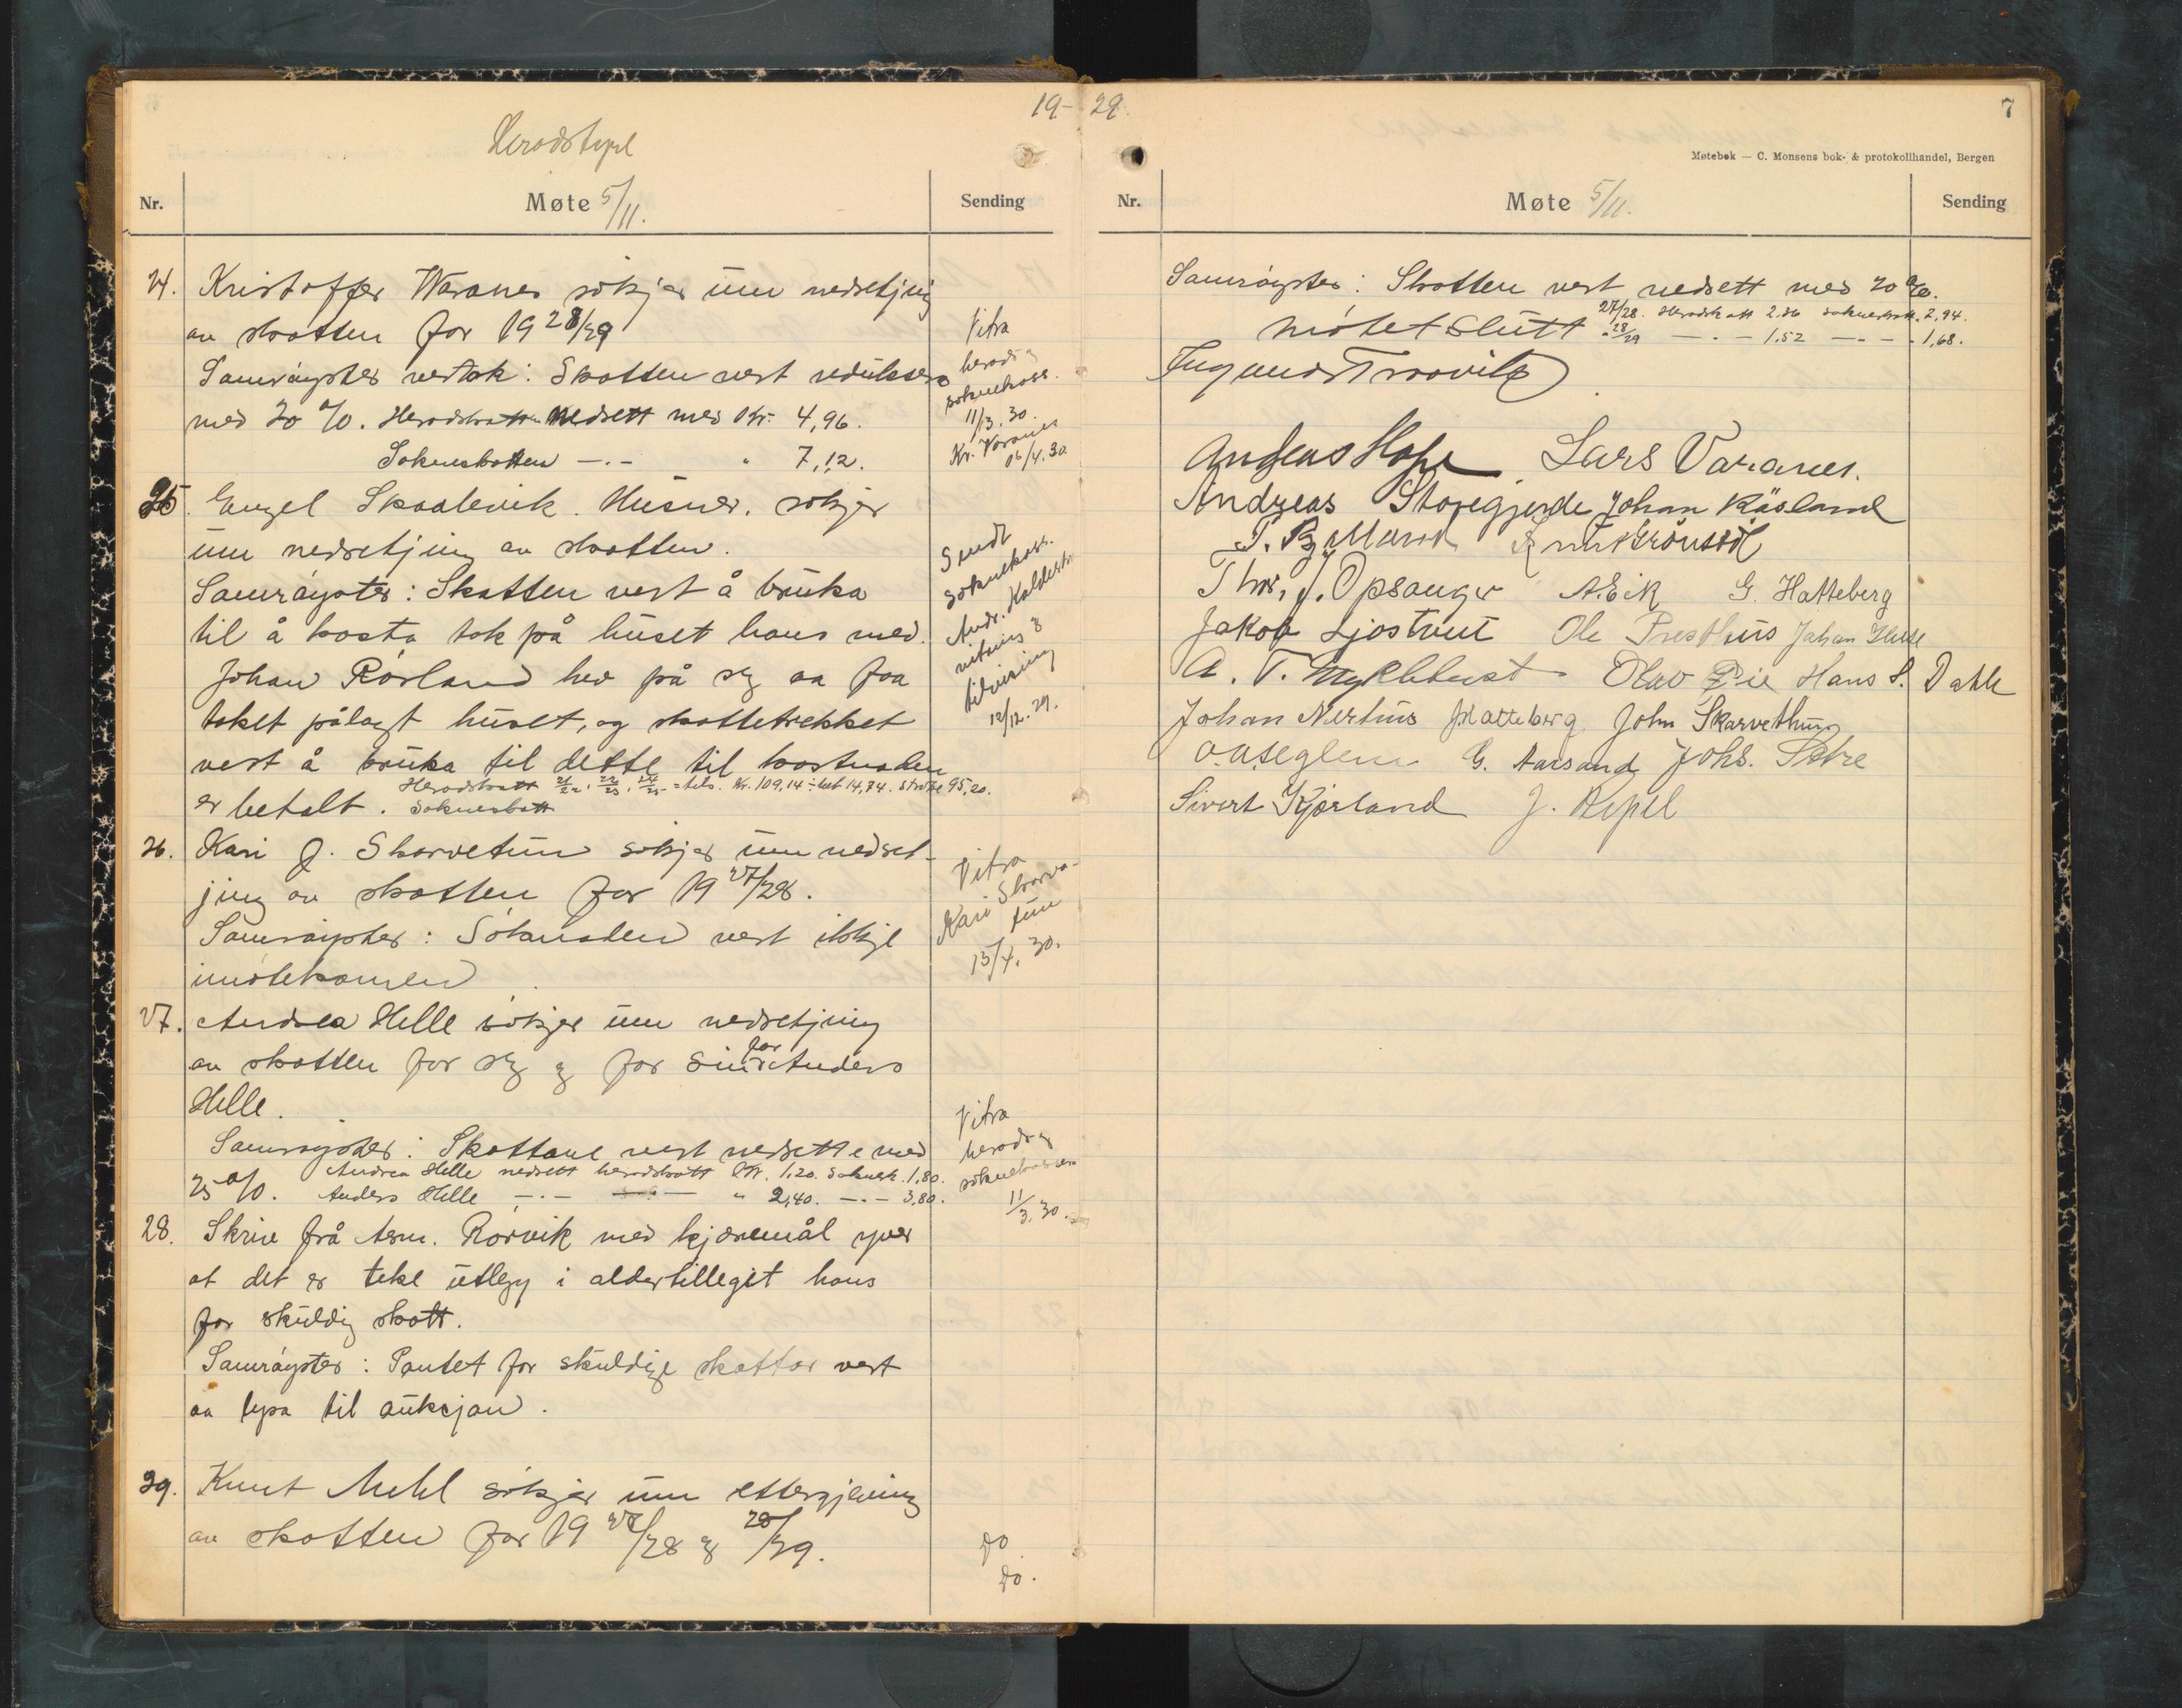 19-
Heradstyre
Nr.
Møte 5/11.
Sending
24. Kristoffer Waranes søkjer um nedsetjing
av skatten for 1928/29
Samrøystes vertok: Skatten vert redusera
med 20 %. Heradskatten nedsett med Kr. 4,96.
Soknesbatten —.— " 7,12.
Vitra
herads og
soknekass.
11/3.30.
Kr. Varanes
4.30
25. Engel Skaalevik. Husnes. søkjer
um nedsetjing av skatten.
Samrøystes: Skatten vert å bruka
til å kosta tak på huset hans med.
Johan Røsland hev på seg aa faa
taket pålagt huset, og skattetrekket
vert å bruka til dette til kostnaden
Heradskatt 21/22, 22/23, 24/25 = tils. Kr. 109,14 ÷ bet 14,74. 95,20.
er betalt. Soknesbatt
Sendt
soknekass.
Andr.
tilvising
12/12.29.
26. Kari J. Skarvetun søkjer um nedset-
jing av skatten for 19 27/28.
Samrøystes: Søknaden vert ikkje
imøtekomen
Vitra
Kari Skarva-
tun
15/4.30.
27. Andrea Helle søkjer um nedsetjing
av skatten for seg og for sin far Anders
Helle.
Samrøystes: Skattane vert nedsette med
Andrea Helle nedsett heradskatt Kr. 1,20. Soknesk. 1,80.
25 %. Anders Helle —.— —.— " 2,40. —.— 3,80.
Vitra
herads og
soknekassen
11/3.30.
28. Skriv frå Arm. Rørvik med kjæremål yver
at det er teke utlegg i alderstilleget hans
for skuldig skatt.
Samrøystes: Pantet for skuldige skattar vert
aa lysa til auksjon.
29. Knut Mehl søkjer um ettergjeving
av skatten for 19 27/28 og 28/29.
do
do.
29.
7
Møtebok — C. Monsens bok- & protokollhandel, Bergen
Nr.
Møte 5/11.
Sending
Samrøystes: Skatten vert nedsett med 20 %.
27/28. Heradskatt 2.36 soknesskatt. 2,94.
Møtet Slutt 28/29 —.— 1.52 —.— 1,68.
Ingmund Traavik
Andreas Hope Lars Varanes.
Andreas Storegjerde Johan Råsland
T. Bj. Knut Grønsdal
Thor. J. Opsanger A. Eik G. Hatteberg
Jakob Ljostveit Ole Presthus Johan Huse
A. T. Myklebust Olav Øie Hans S. Dahle
Johan Nerhus J Hatteberg John Skarvethun
O. A. Seglem G. Aarsand Johs. Sætre
Sivert Kjørland J. Repel